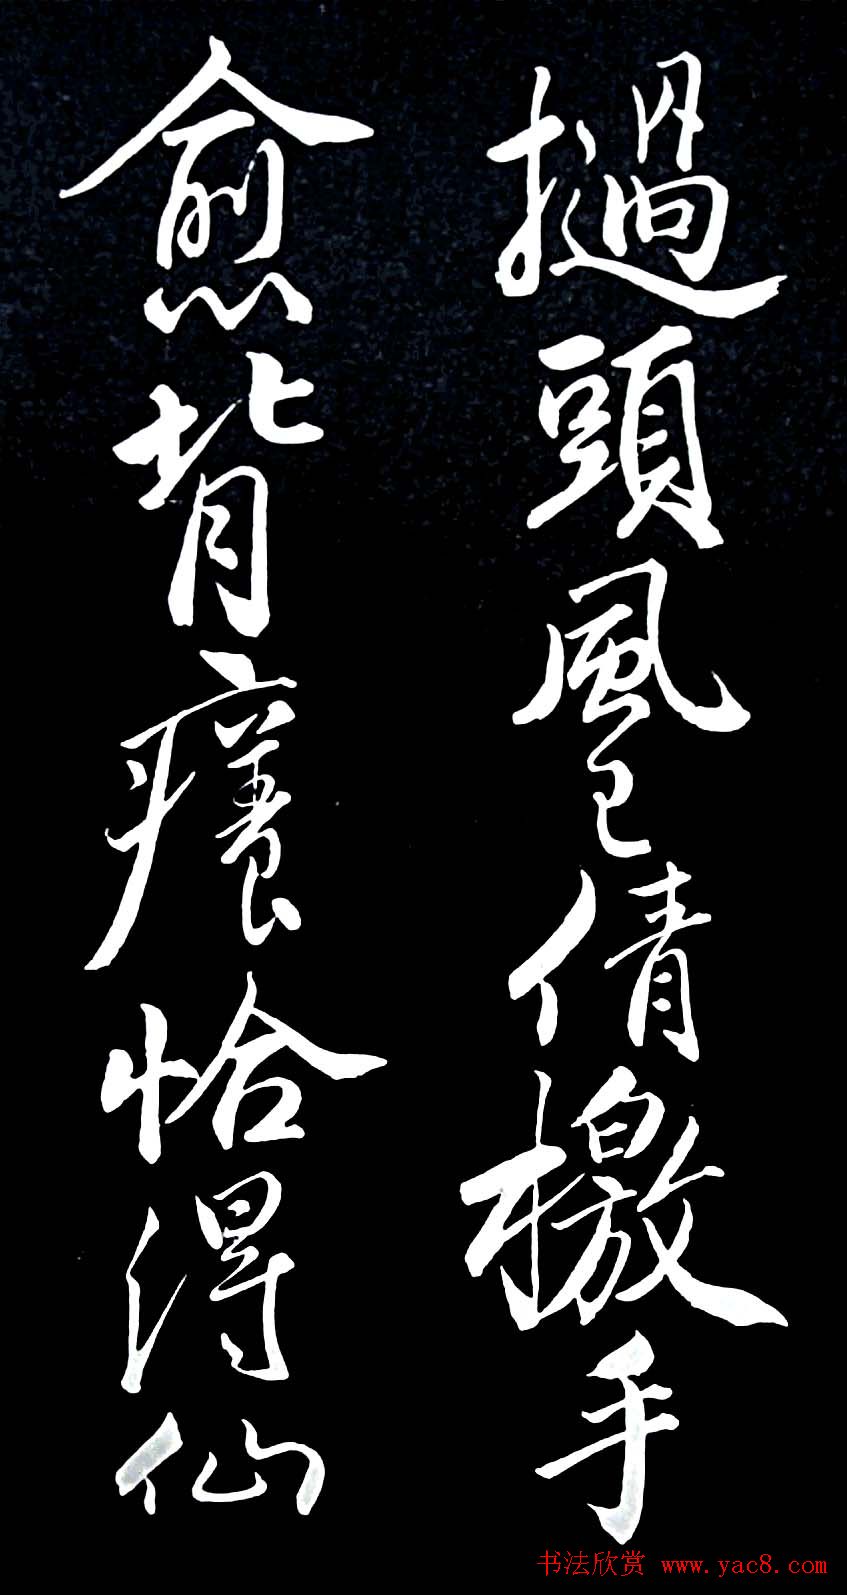 撾頭風已倩檄手
愈背癢恰得仙
书法欣赏 www.yac8.com